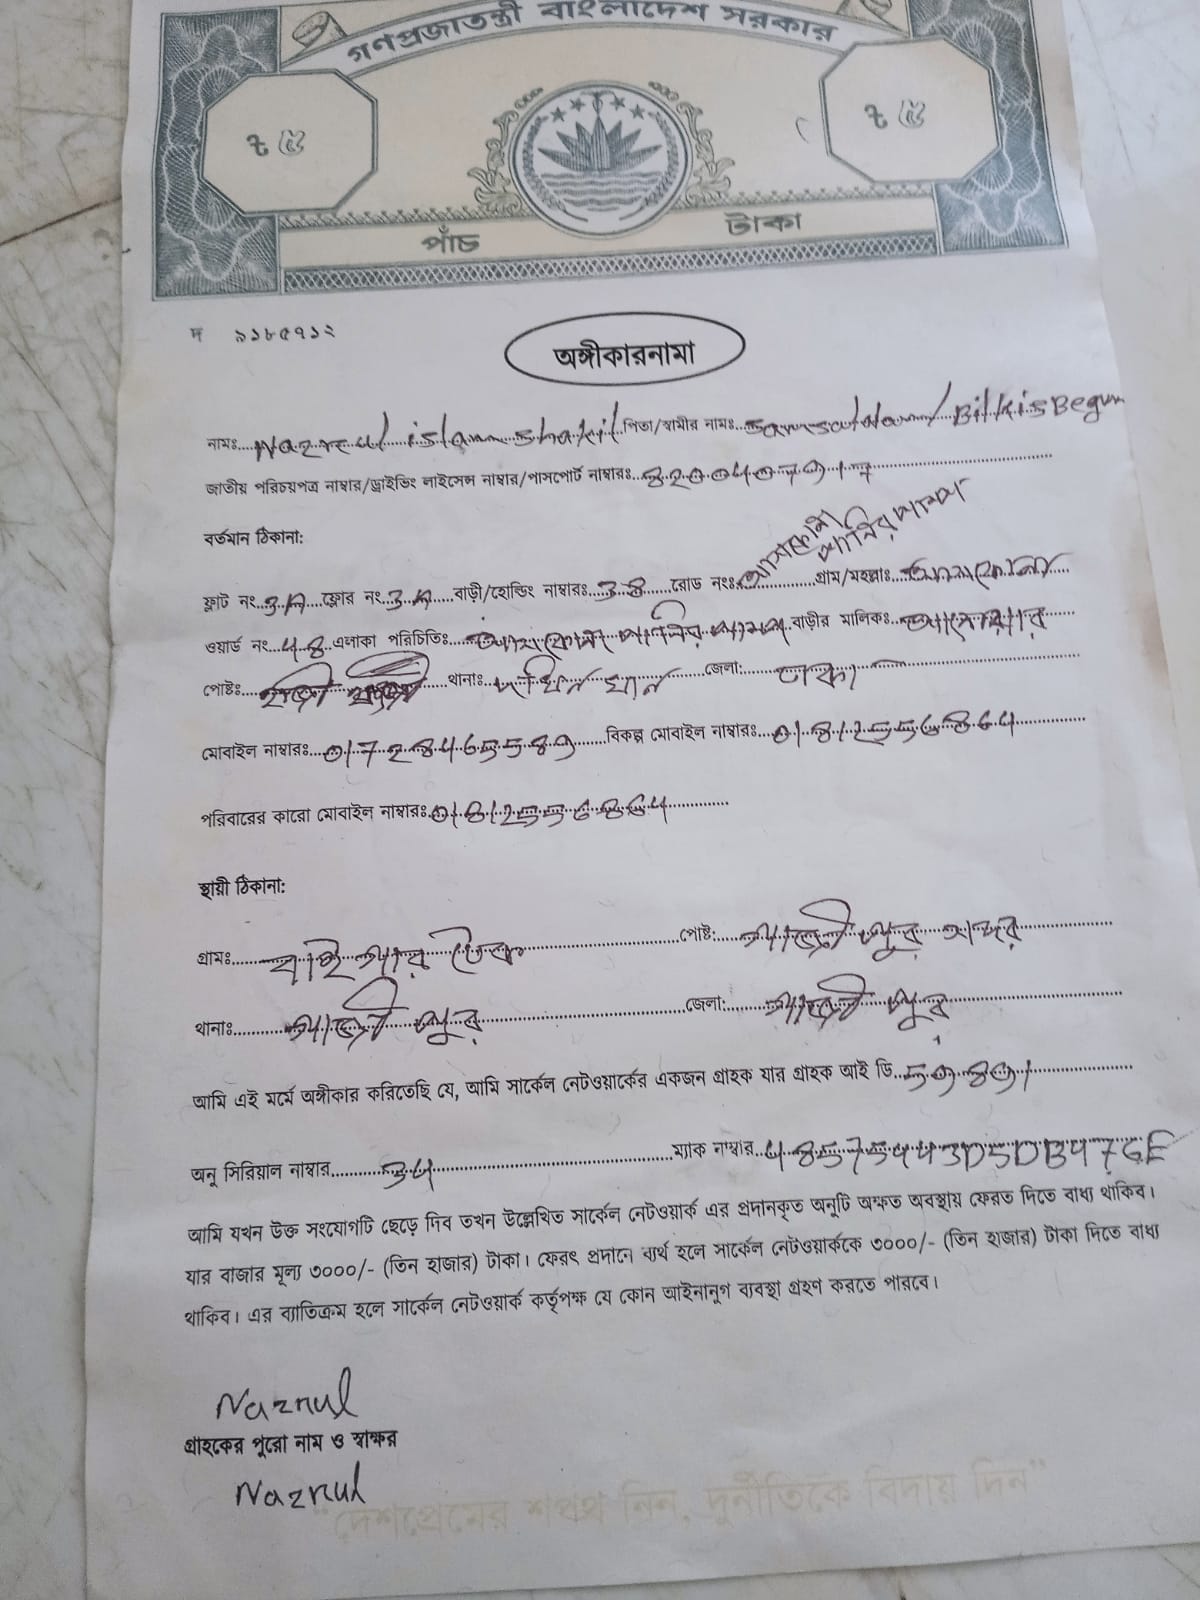 গণপ্রজাতন্ত্রী বাংলাদেশ সরকার
৳ ৫ ৳ ৫
পাঁচ টাকা
দ ৯১৮৫৭১২
অঙ্গীকারনামা
নামঃ Nazrul islam shakil পিতা/স্বামীর নামঃ Samsul Alam/BilkisBegum
জাতীয় পরিচয়পত্র নাম্বার/ড্রাইভিং লাইসেন্স নাম্বার/পাসপোর্ট নাম্বারঃ
বর্তমান ঠিকানা:
আসকোনা
পানির পাম্প
ফ্লাট নং 3A ফ্লোর নং 3A বাড়ী/হোল্ডিং নাম্বারঃ 38 রোড নংঃ গ্রাম/মহল্লাঃ আসকোনা
ওয়ার্ড নং 48 এলাকা পরিচিতিঃ আসকোনা পানির পাম্প বাড়ীর মালিকঃ
পোষ্টঃ থানাঃ দক্ষিনখান জেলা: ঢাকা
মোবাইল নাম্বারঃ 01728465589 বিকল্প মোবাইল নাম্বারঃ 01812556864
পরিবারের কারো মোবাইল নাম্বারঃ 01812556864
স্থায়ী ঠিকানা:
গ্রামঃ পোষ্ট: গাজীপুর সদর
থানাঃ গাজীপুর জেলা: গাজীপুর
আমি এই মর্মে অঙ্গীকার করিতেছি যে, আমি সার্কেল নেটওয়ার্কের একজন গ্রাহক যার গ্রাহক আই ডি
অনু সিরিয়াল নাম্বার 34 ম্যাক নাম্বার 48575443D5DB976E
আমি যখন উক্ত সংযোগটি ছেড়ে দিব তখন উল্লেখিত সার্কেল নেটওয়ার্ক এর প্রদানকৃত অনুটি অক্ষত অবস্থায় ফেরত দিতে বাধ্য থাকিব।
যার বাজার মূল্য ৩০০০/- (তিন হাজার) টাকা। ফেরৎ প্রদানে ব্যর্থ হলে সার্কেল নেটওয়ার্ককে ৩০০০/- (তিন হাজার) টাকা দিতে বাধ্য
থাকিব। এর ব্যাতিক্রম হলে সার্কেল নেটওয়ার্ক কর্তৃপক্ষ যে কোন আইনানুগ ব্যবস্থা গ্রহণ করতে পারবে।
Nazrul
গ্রাহকের পুরো নাম ও স্বাক্ষর
Nazrul
"দেশপ্রেমের শপথ নিন, দুর্নীতিকে বিদায় দিন"